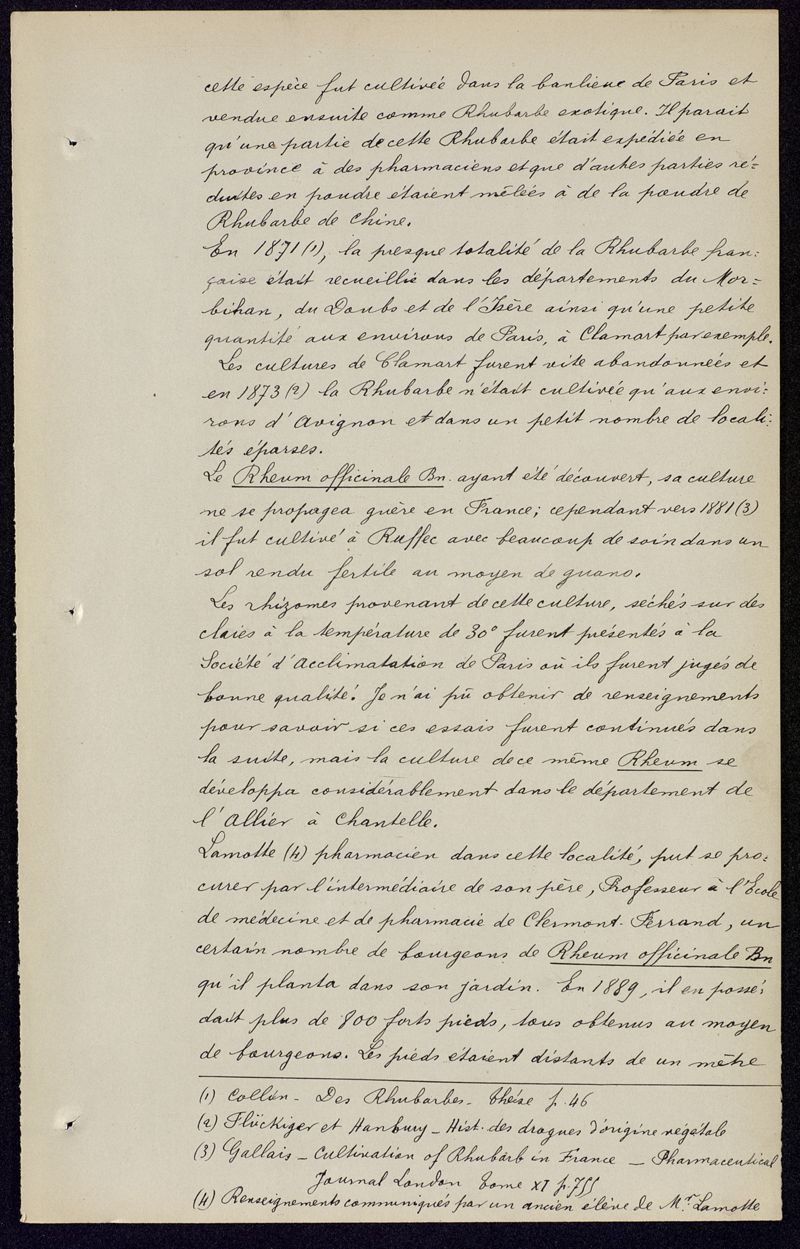 cette espèce fut cultivée dans la banlieue de Paris et
vendue ensuite comme Rhubarbe exotique. Il parait
qu'une partie de cette Rhubarbe était expédiée en
province à des pharmaciens et que d'autres parties ré-
duites en poudre étaient mêlées à de la poudre de
Rhubarbe de Chine.
En 1871 (1), la presque totalité de la Rhubarbe fran-
çaise était recueillie dans les départements du Mor-
bihan, du Doubs et de l'Isère ainsi qu'une petite
quantité aux environs de Paris, à Clamart par exemple.
Les cultures de Clamart furent vite abandonnées et
en 1873 (2) la Rhubarbe n'était cultivée qu'aux envi-
rons d'Avignon et dans un petit nombre de locali-
tés éparses.
Le Rheum officinale Bn. ayant été découvert, sa culture
ne se propagea guère en France; cependant vers 1881 (3)
il fut cultivé à Ruffec avec beaucoup de soin dans un
sol rendu fertile au moyen de guano.
Les rhizomes provenant de cette culture, séchés sur des
claies à la température de 30° furent présentés à la
Société d'Acclimatation de Paris où ils furent jugés de
bonne qualité. Je n'ai pû obtenir de renseignements
pour savoir si ces essais furent continués dans
la suite, mais la culture de ce même Rheum se
développa considérablement dans le département de
l'Allier à Chantelle.
Lamotte (4) pharmacien dans cette localité, put se pro-
curer par l'intermédiaire de son père, Professeur à l'Ecole
de médecine et de pharmacie de Clermont-Ferrand, un
certain nombre de bourgeons de Rheum officinale Bn
qu'il planta dans son jardin. En 1889, il en possé-
dait plus de 800 forts pieds, tous obtenus au moyen
de bourgeons. Les pieds étaient distants de un mètre
(1) Collin - Des Rhubarbes - thèse p. 46
(2) Flückiger et Hanbury - Hist. des drogues d'origine végétale
(3) Gallais - Cultivation of Rhubarb in France - Pharmaceutical
Journal London Tome XI p. 755
(4) Renseignements communiqués par un ancien élève de Mr. Lamotte